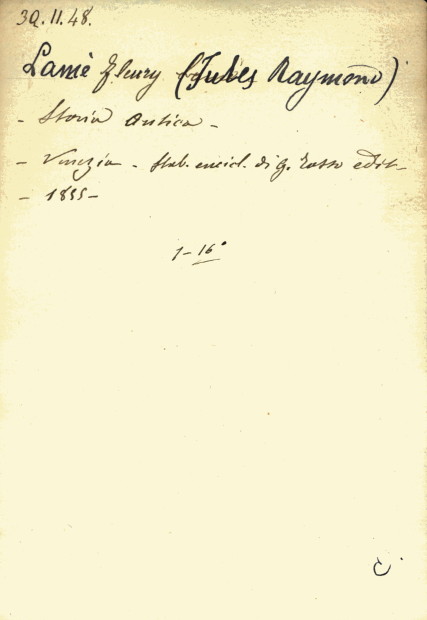 3Q.11.48.
Lamè Fleury (Jules Raymond)
- Storia Antica -
- Venezia - Stab. encicl. di G. Tasso edit -
- 1855 -
1 - 16°
C.